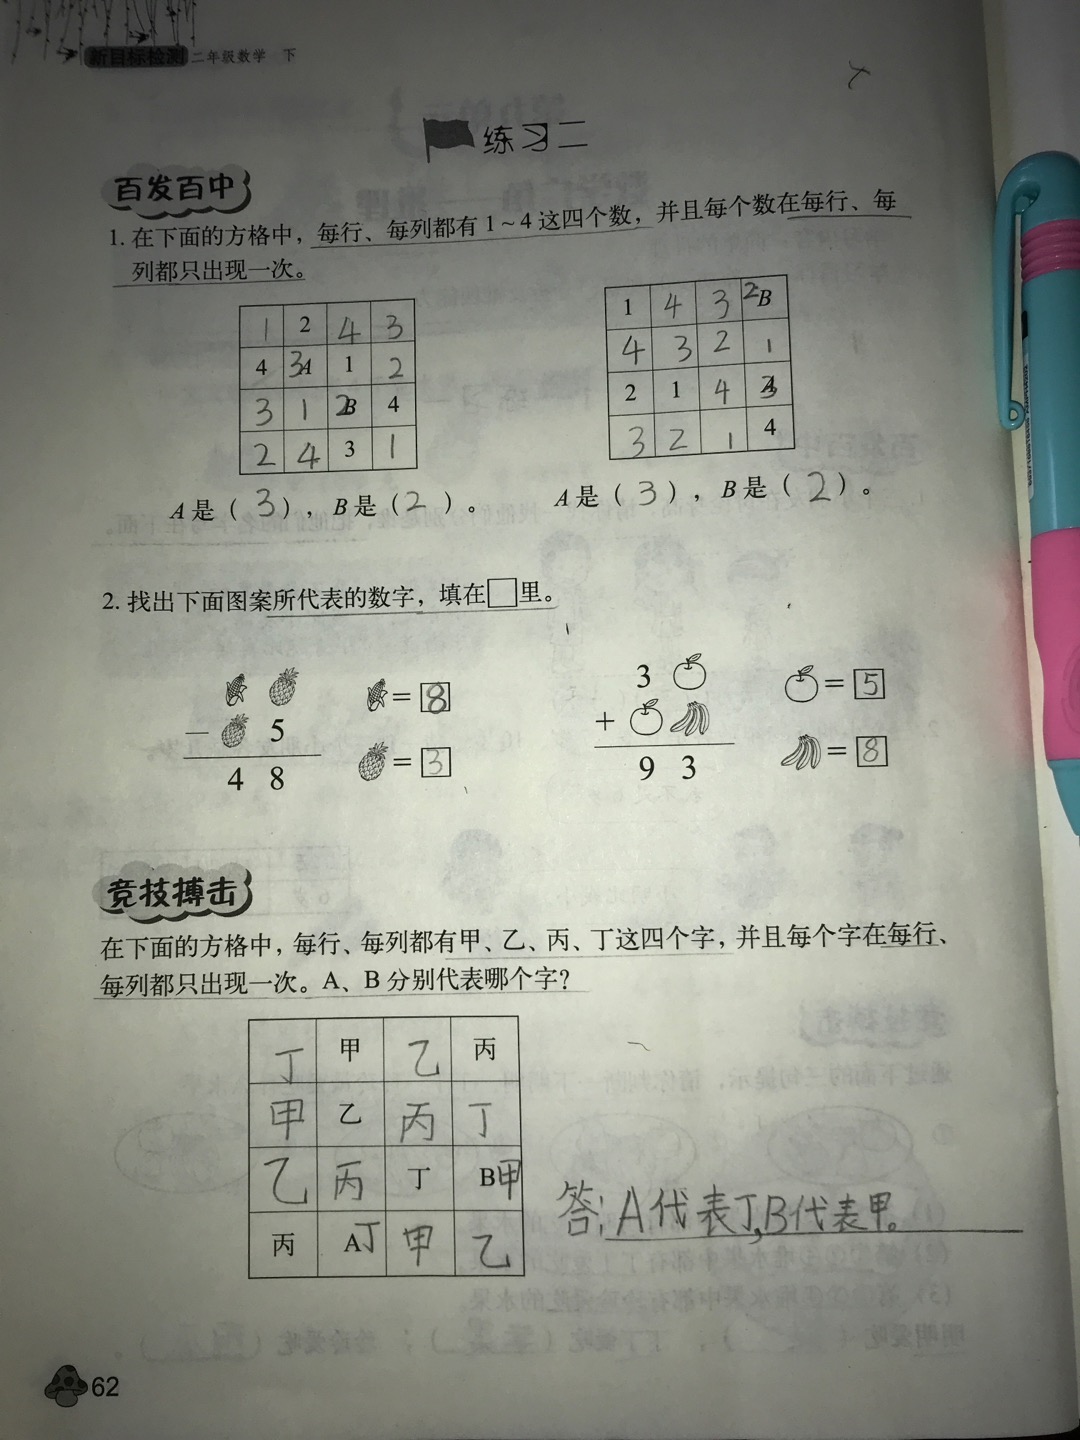 新目标检测 二年级数学 下
练习二
百发百中
1. 在下面的方格中，每行、每列都有1~4这四个数，并且每个数在每行、每
列都只出现一次。
1 2 4 3
4 3A 1 2
3 1 2B 4
2 4 3 1
A是（3），B是（2）。
1 4 3 2B
4 3 2 1
2 1 4 3
3 2 1 4
A是（3），B是（2）。
2. 找出下面图案所代表的数字，填在□里。
= 8
- 5
= 3
4 8
3
= 5
+
= 8
9 3
竞技搏击
在下面的方格中，每行、每列都有甲、乙、丙、丁这四个字，并且每个字在每行、
每列都只出现一次。A、B分别代表哪个字？
丁 甲 乙 丙
甲 乙 丙 丁
乙 丙 丁 B甲
丙 A丁 甲 乙
答：A代表丁，B代表甲。
62